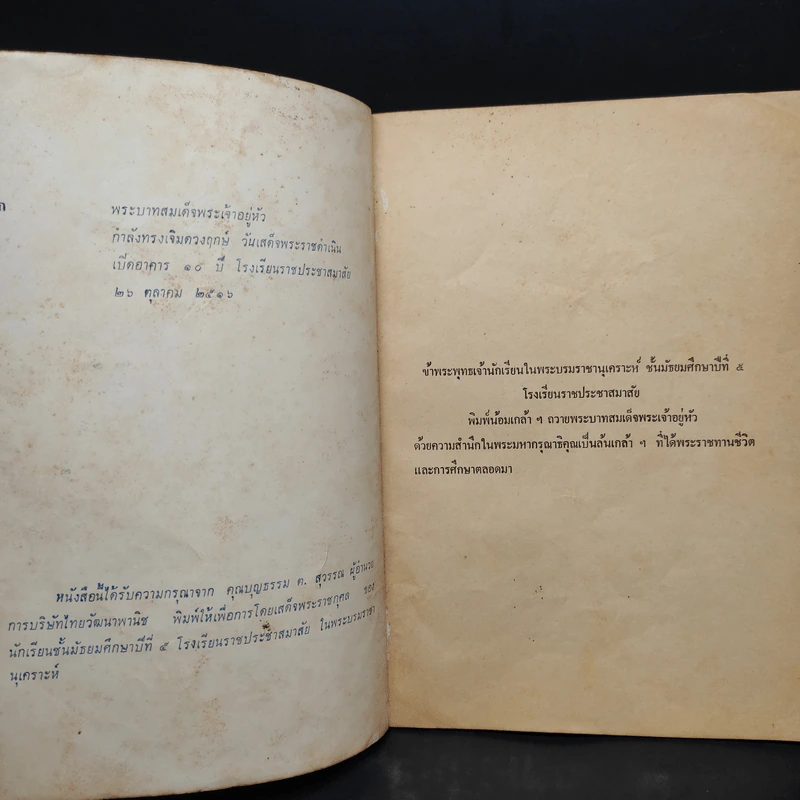 ก
พระบาทสมเด็จพระเจ้าอยู่หัว
กำลังทรงเจิมดวงฤกษ์ วันเสด็จพระราชดำเนิน
เปิดอาคาร ๑๐ ปี โรงเรียนราชประชาสมาสัย
๒๖ ตุลาคม ๒๕๑๖
หนังสือนี้ได้รับความกรุณาจาก คุณบุญธรรม ต. สุวรรณ ผู้อำนวย
การบริษัทไทยวัฒนาพานิช พิมพ์ให้เพื่อการโดยเสด็จพระราชกุศล ของ
นักเรียนชั้นมัธยมศึกษาปีที่ ๕ โรงเรียนราชประชาสมาสัย ในพระบรมราชา
นุเคราะห์
ข้าพระพุทธเจ้านักเรียนในพระบรมราชานุเคราะห์ ชั้นมัธยมศึกษาปีที่ ๕
โรงเรียนราชประชาสมาสัย
พิมพ์น้อมเกล้า ฯ ถวายพระบาทสมเด็จพระเจ้าอยู่หัว
ด้วยความสำนึกในพระมหากรุณาธิคุณเป็นล้นเกล้า ฯ ที่ได้พระราชทานชีวิต
และการศึกษาตลอดมา